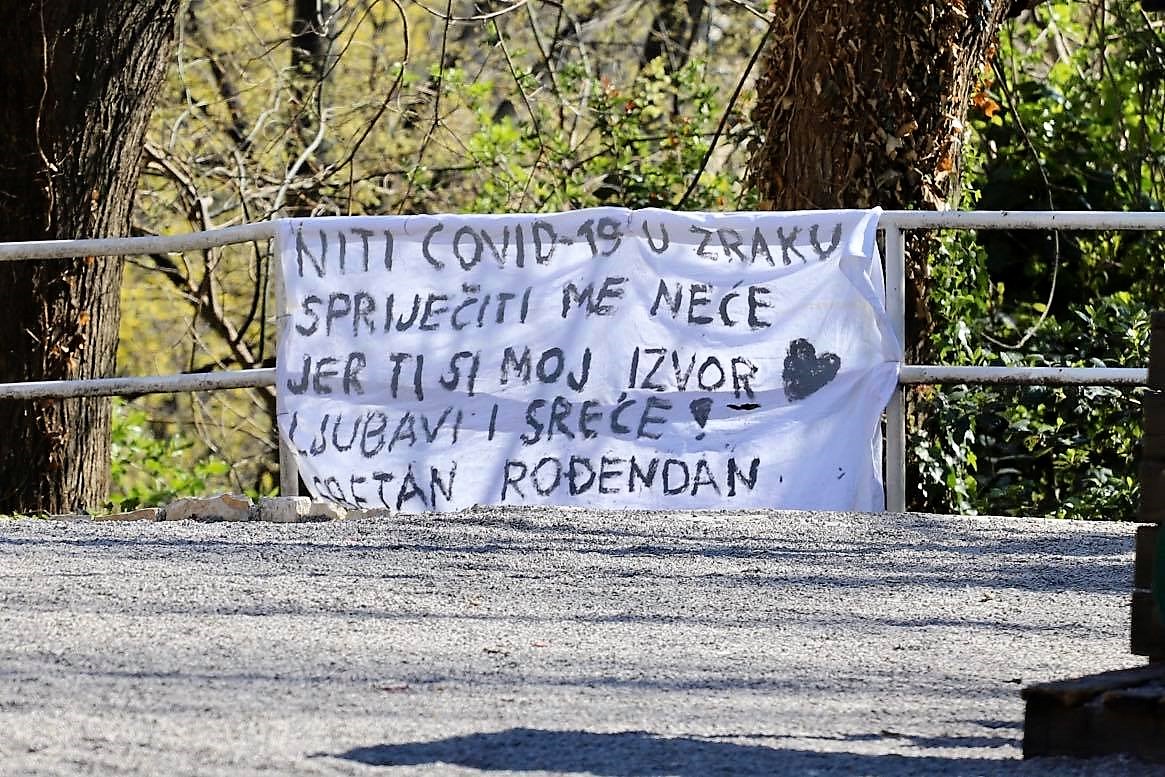 NITI COVID-19 U ZRAKU
SPRIJEČITI ME NEĆE
JER TI SI MOJ IZVOR
LJUBAVI I SREĆE!
SRETAN ROĐENDAN.